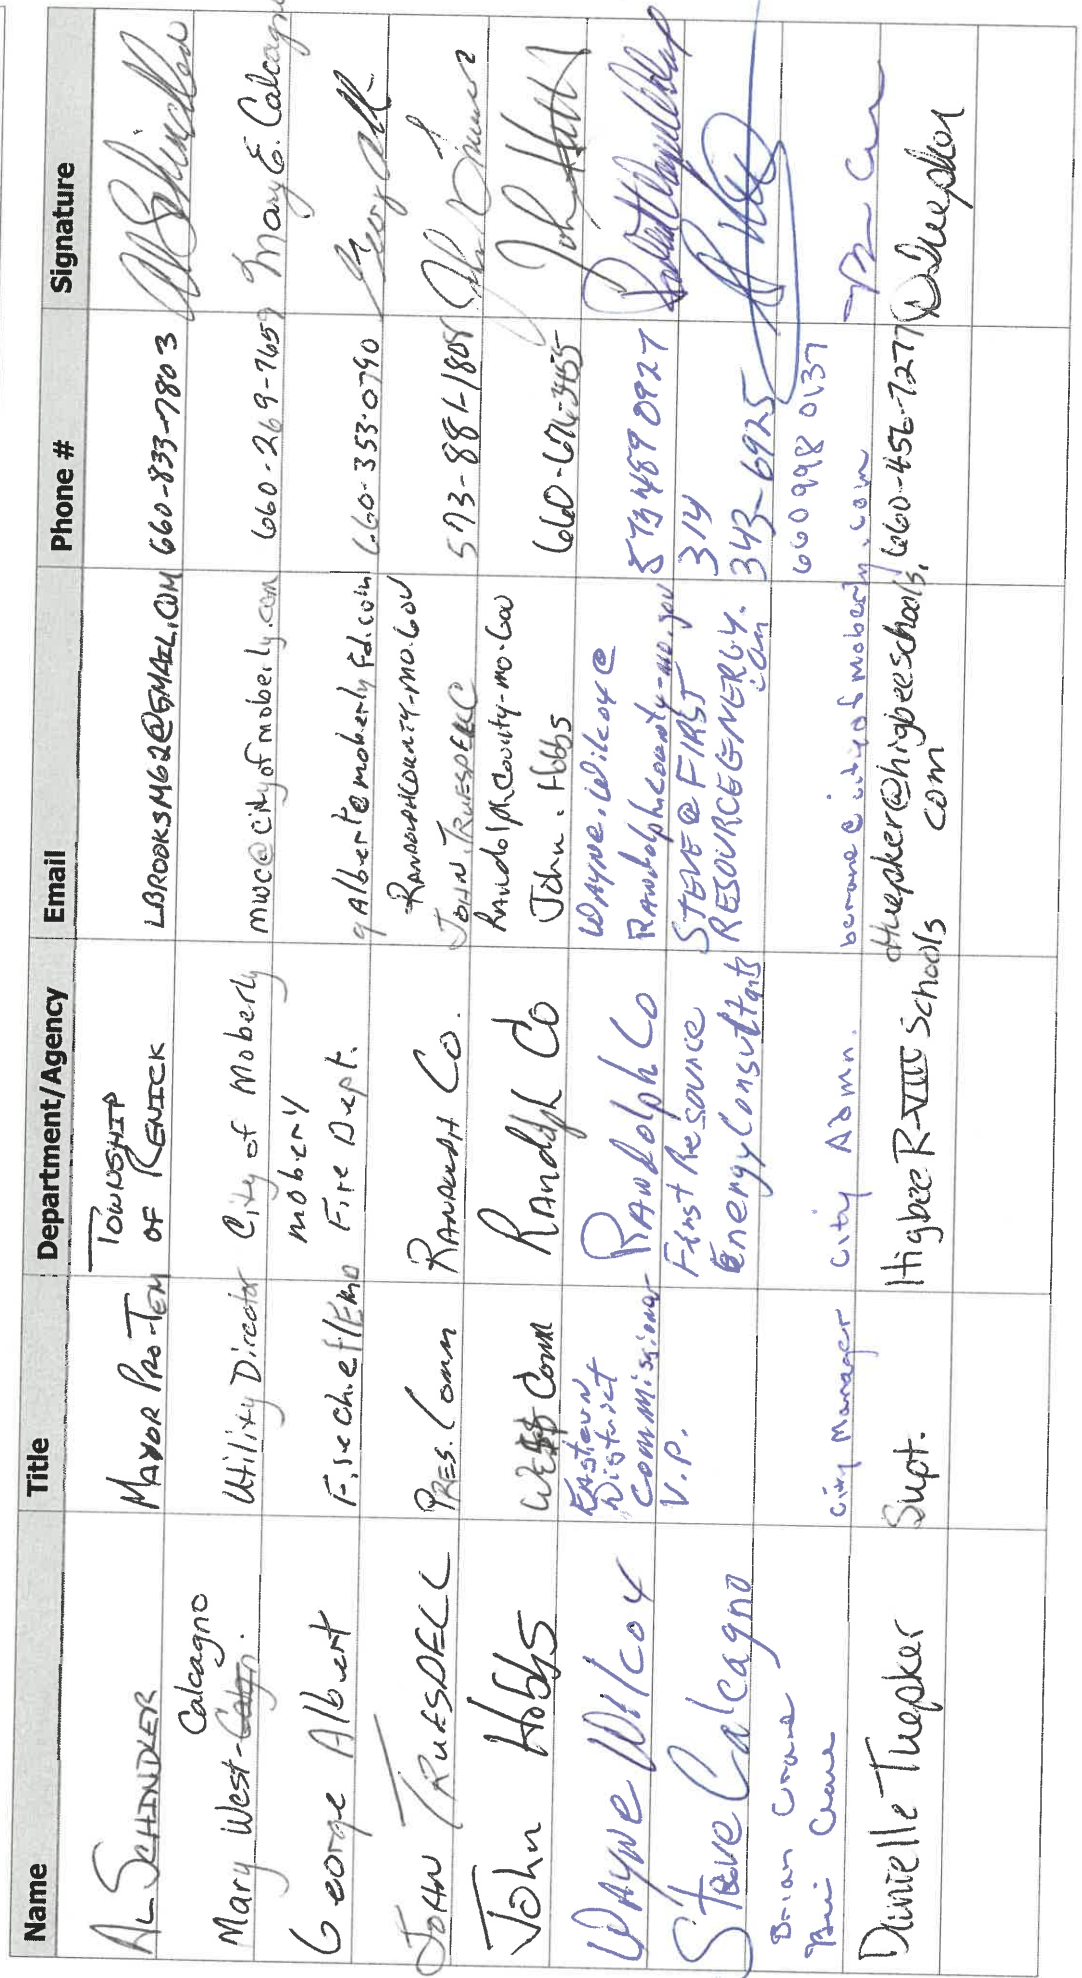 Name Title Department/Agency Email Phone # Signature
AL SCHINDLER MAYOR PRO-TEM TOWNSHIP
OF RENICK LBROOKSM62@GMAIL.COM 660-833-7803
Calcagno
Mary West- Utility Director City of Moberly mwc@cityofmoberly.com 660-269-7659 Mary E. Calcagno
George Albert Fire chief/EMD moberly
Fire Dept. galbert@moberlyfd.com 660-353-0790
JOHN TRUESDELL PRES. Comm RANDOLPH CO. RANDOLPHCOUNTY-MO.GOV
JOHN.TRUESDELL 573-881-1808
John Hobbs WEST Comm RANdolph Co RANdolphCounty-mo.Gov
John.Hobbs 660-676-3155
WAYNE Wilcox EASTERN
District
Commissioner RANdolph Co WAYNE.Wilcox@
Randolphcounty-mo.gov 573 489 0927
Steve Calcagno V.P. First Resource
Energy Consultants STEVE@FIRST
RESOURCEENERGY.
com 314
343-6925
Brian Crane
Brian Crane City Manager City Admn. bcrane@cityofmoberly.com 660 998 0137
Danielle Thepker Supt. Higbee R-VIII Schools dthepker@higbeeschools.
com 660-456-7277 DThepker